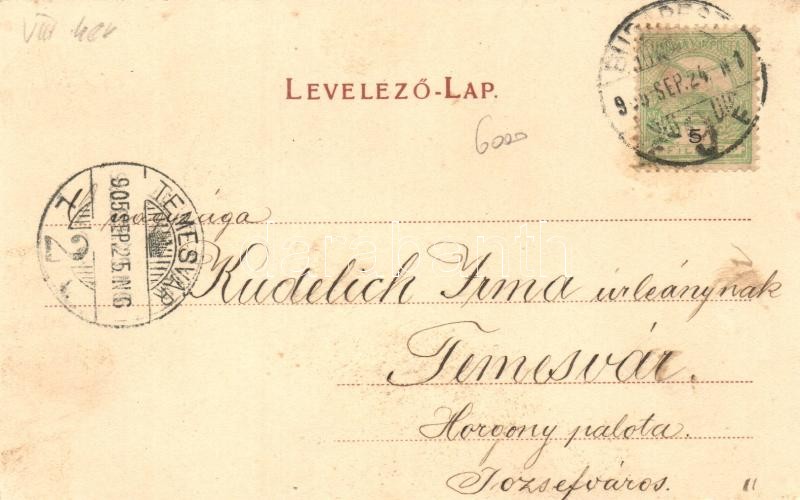 VIII ker
BUDAPEST
905 SEP. 24
LEVELEZŐ-LAP.
6000
5
TEMESVÁR
905 SEP. 25. N6
nagysága
Kudelich Irma úrleánynak
Temesvár.
Horgony palota.
Józsefváros.
darabanth